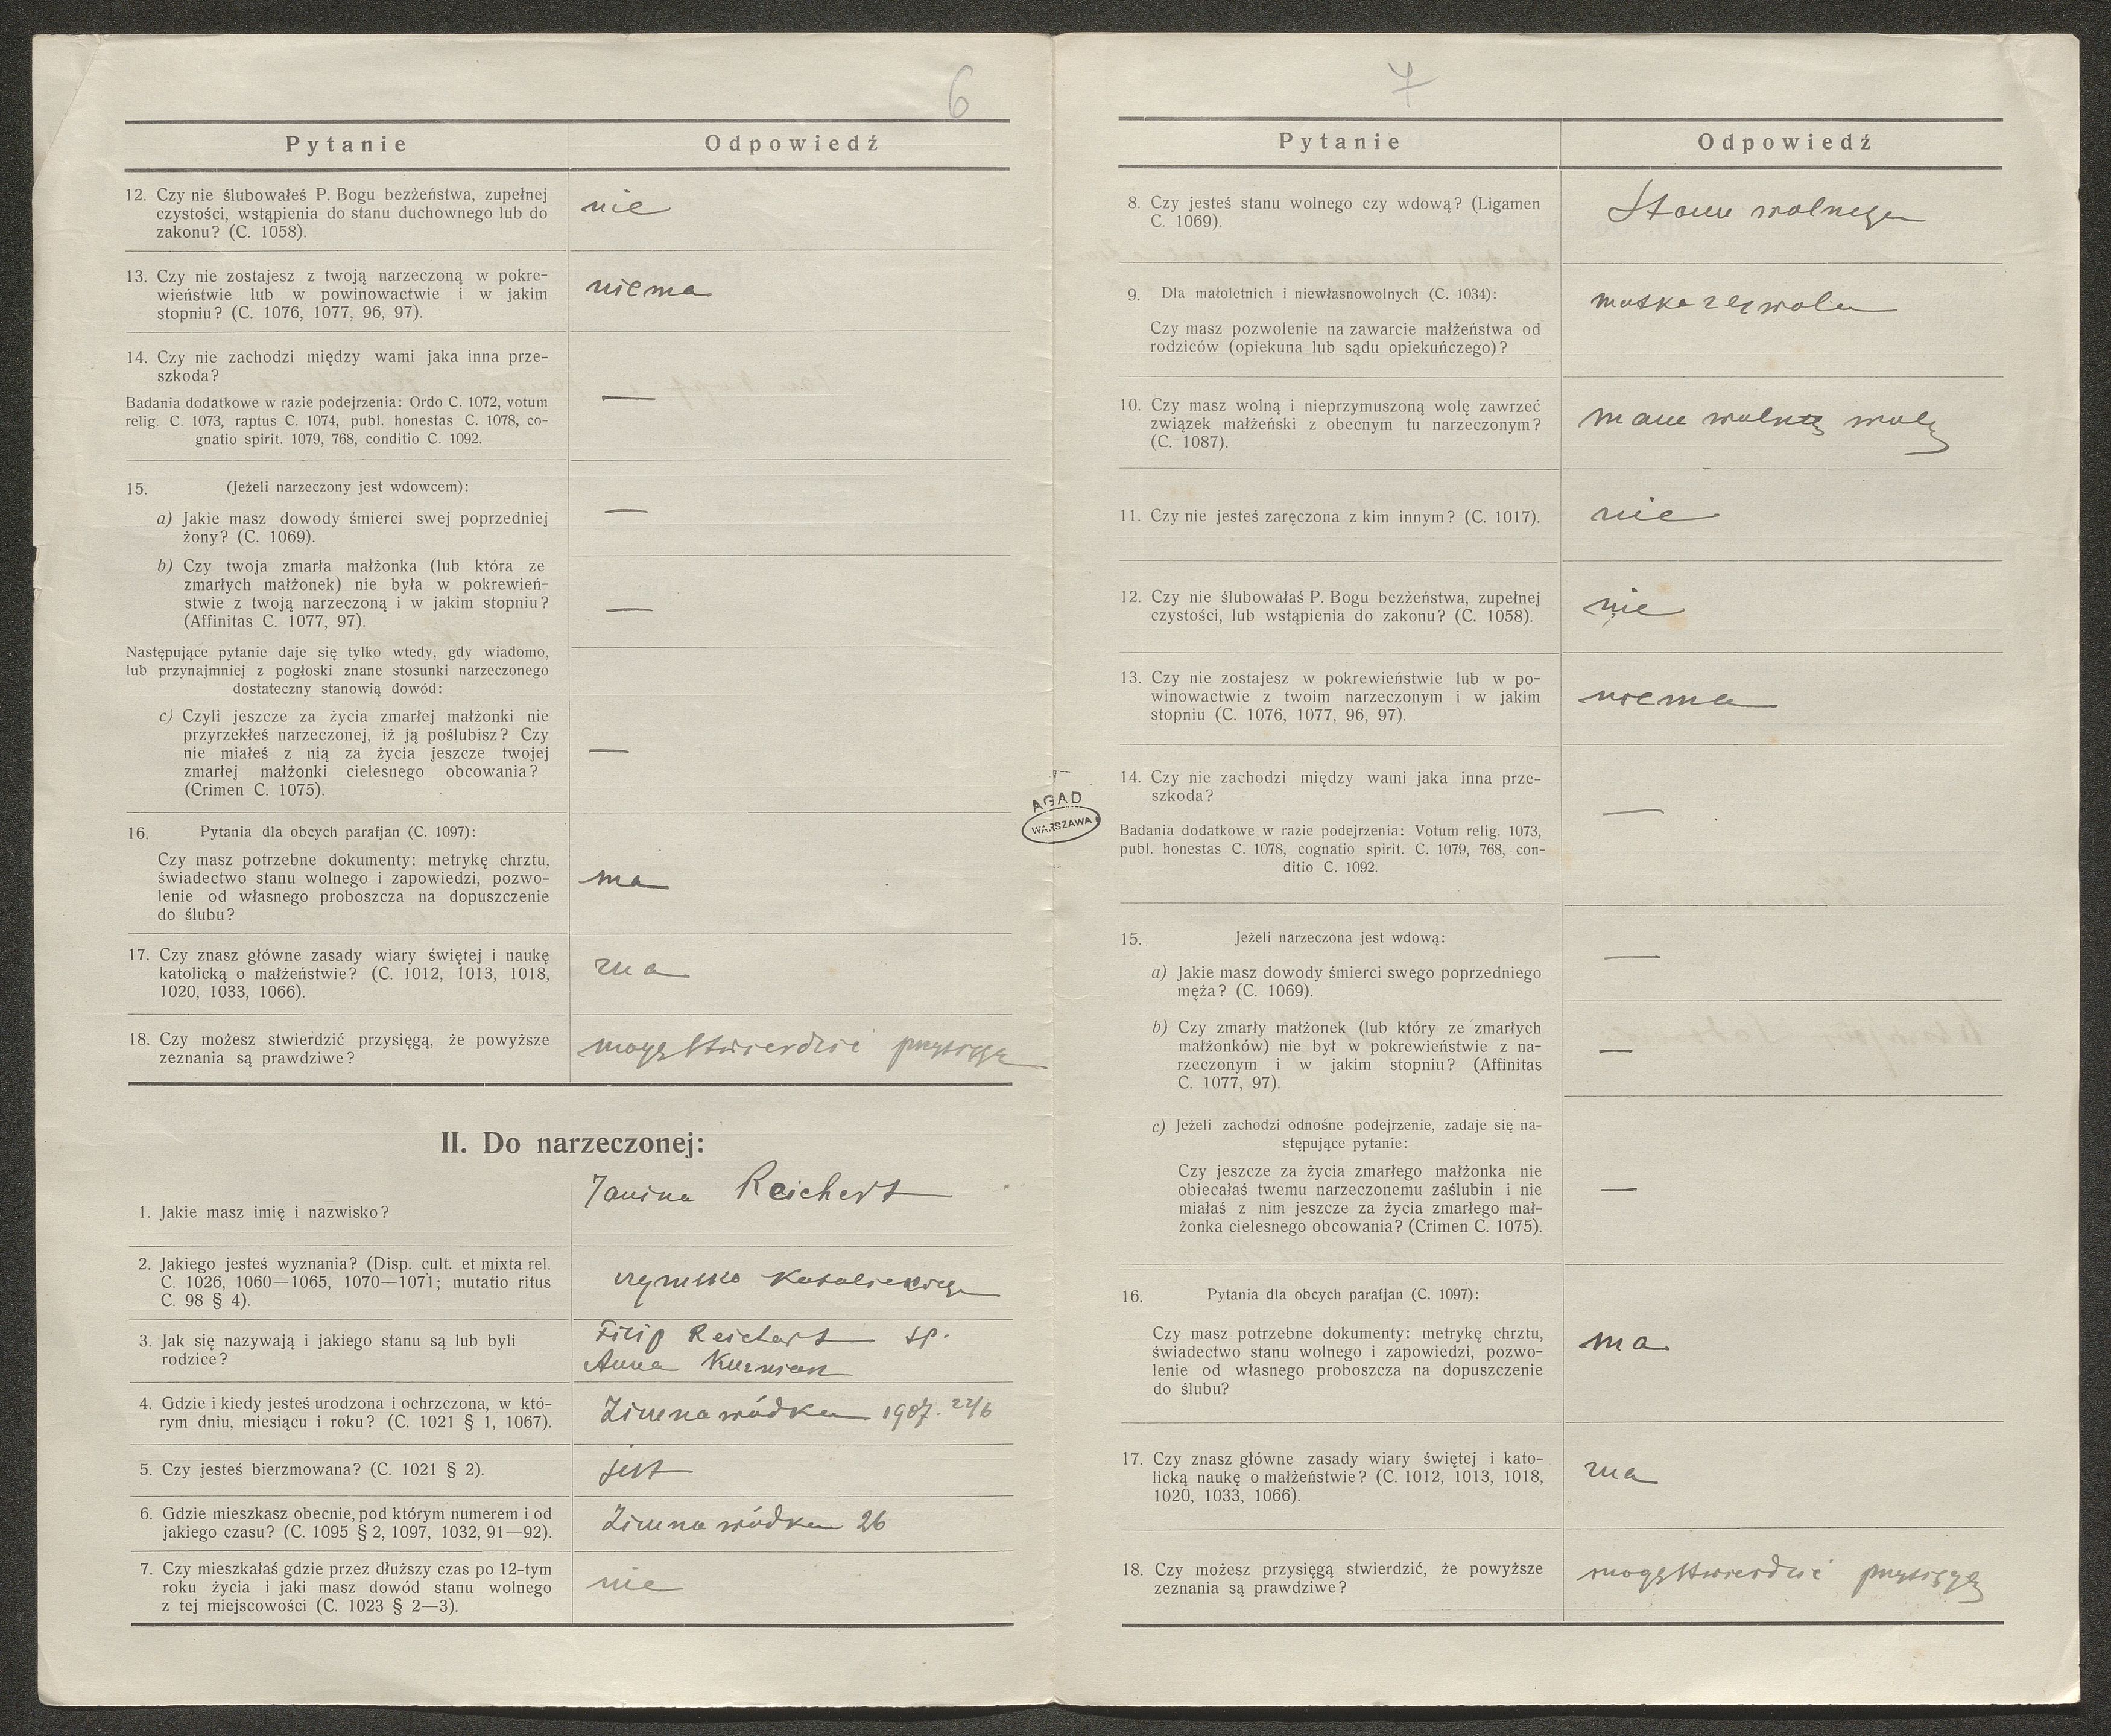 6
Pytanie
Odpowiedź
12. Czy nie ślubowałeś P. Bogu bezżeństwa, zupełnej
czystości, wstąpienia do stanu duchownego lub do
zakonu? (C. 1058).
nie
13. Czy nie zostajesz z twoją narzeczoną w pokre-
wieństwie lub w powinowactwie i w jakim
stopniu? (C. 1076, 1077, 96, 97).
niema
14. Czy nie zachodzi między wami jaka inna prze-
szkoda?
Badania dodatkowe w razie podejrzenia: Ordo C. 1072, votum
relig. C. 1073, raptus C. 1074, publ. honestas C. 1078, co-
gnatio spirit. 1079, 768, conditio C. 1092.
—
15. (Jeżeli narzeczony jest wdowcem):
a) Jakie masz dowody śmierci swej poprzedniej
żony? (C. 1069).
—
b) Czy twoja zmarła małżonka (lub która ze
zmarłych małżonek) nie była w pokrewień-
stwie z twoją narzeczoną i w jakim stopniu?
(Affinitas C. 1077, 97).
—
Następujące pytanie daje się tylko wtedy, gdy wiadomo,
lub przynajmniej z pogłoski znane stosunki narzeczonego
dostateczny stanowią dowód:
c) Czyli jeszcze za życia zmarłej małżonki nie
przyrzekłeś narzeczonej, iż ją poślubisz? Czy
nie miałeś z nią za życia jeszcze twojej
zmarłej małżonki cielesnego obcowania?
(Crimen C. 1075).
—
16. Pytania dla obcych parafjan (C. 1097):
Czy masz potrzebne dokumenty: metrykę chrztu,
świadectwo stanu wolnego i zapowiedzi, pozwo-
lenie od własnego proboszcza na dopuszczenie
do ślubu?
ma
17. Czy znasz główne zasady wiary świętej i naukę
katolicką o małżeństwie? (C. 1012, 1013, 1018,
1020, 1033, 1066).
zna
18. Czy możesz stwierdzić przysięgą, że powyższe
zeznania są prawdziwe?
mogę stwierdzić przysięgą
II. Do narzeczonej:
1. Jakie masz imię i nazwisko?
Janina Reichert
2. Jakiego jesteś wyznania? (Disp. cult. et mixta rel.
C. 1026, 1060—1065, 1070—1071; mutatio ritus
C. 98 § 4).
rzymsko katolickiego
3. Jak się nazywają i jakiego stanu są lub byli
rodzice?
Filip Reichert śp.
Anna Kuzniak
4. Gdzie i kiedy jesteś urodzona i ochrzczona, w któ-
rym dniu, miesiącu i roku? (C. 1021 § 1, 1067).
Zimnawódka 1907. 22/6
5. Czy jesteś bierzmowana? (C. 1021 § 2).
jest
6. Gdzie mieszkasz obecnie, pod którym numerem i od
jakiego czasu? (C. 1095 § 2, 1097, 1032, 91—92).
Zimnawódka 26
7. Czy mieszkałaś gdzie przez dłuższy czas po 12-tym
roku życia i jaki masz dowód stanu wolnego
z tej miejscowości (C. 1023 § 2—3).
nie
AGAD
WARSZAWA
7
Pytanie
Odpowiedź
8. Czy jesteś stanu wolnego czy wdową? (Ligamen
C. 1069).
Stanu wolnego
9. Dla małoletnich i niewłasnowolnych (C. 1034):
Czy masz pozwolenie na zawarcie małżeństwa od
rodziców (opiekuna lub sądu opiekuńczego)?
matka zezwala
10. Czy masz wolną i nieprzymuszoną wolę zawrzeć
związek małżeński z obecnym tu narzeczonym?
(C. 1087).
mam wolną wolę
11. Czy nie jesteś zaręczona z kim innym? (C. 1017).
nie
12. Czy nie ślubowałaś P. Bogu bezżeństwa, zupełnej
czystości, lub wstąpienia do zakonu? (C. 1058).
nie
13. Czy nie zostajesz w pokrewieństwie lub w po-
winowactwie z twoim narzeczonym i w jakim
stopniu (C. 1076, 1077, 96, 97).
niema
14. Czy nie zachodzi między wami jaka inna prze-
szkoda?
Badania dodatkowe w razie podejrzenia: Votum relig. 1073,
publ. honestas C. 1078, cognatio spirit. C. 1079, 768, con-
ditio C. 1092.
—
15. Jeżeli narzeczona jest wdową:
a) Jakie masz dowody śmierci swego poprzedniego
męża? (C. 1069).
—
b) Czy zmarły małżonek (lub który ze zmarłych
małżonków) nie był w pokrewieństwie z na-
rzeczonym i w jakim stopniu? (Affinitas
C. 1077, 97).
—
c) Jeżeli zachodzi odnośne podejrzenie, zadaje się na-
stępujące pytanie:
Czy jeszcze za życia zmarłego małżonka nie
obiecałaś twemu narzeczonemu zaślubin i nie
miałaś z nim jeszcze za życia zmarłego mał-
żonka cielesnego obcowania? (Crimen C. 1075).
—
16. Pytania dla obcych parafjan (C. 1097):
Czy masz potrzebne dokumenty: metrykę chrztu,
świadectwo stanu wolnego i zapowiedzi, pozwo-
lenie od własnego proboszcza na dopuszczenie
do ślubu?
ma
17. Czy znasz główne zasady wiary świętej i kato-
licką naukę o małżeństwie? (C. 1012, 1013, 1018,
1020, 1033, 1066).
zna
18. Czy możesz przysięgą stwierdzić, że powyższe
zeznania są prawdziwe?
mogę stwierdzić przysięgą